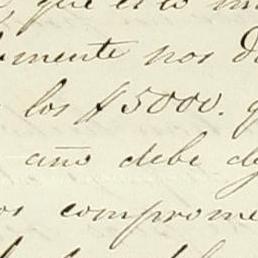 que esto
mente nos
los $5000. q
año debe de
os comprome